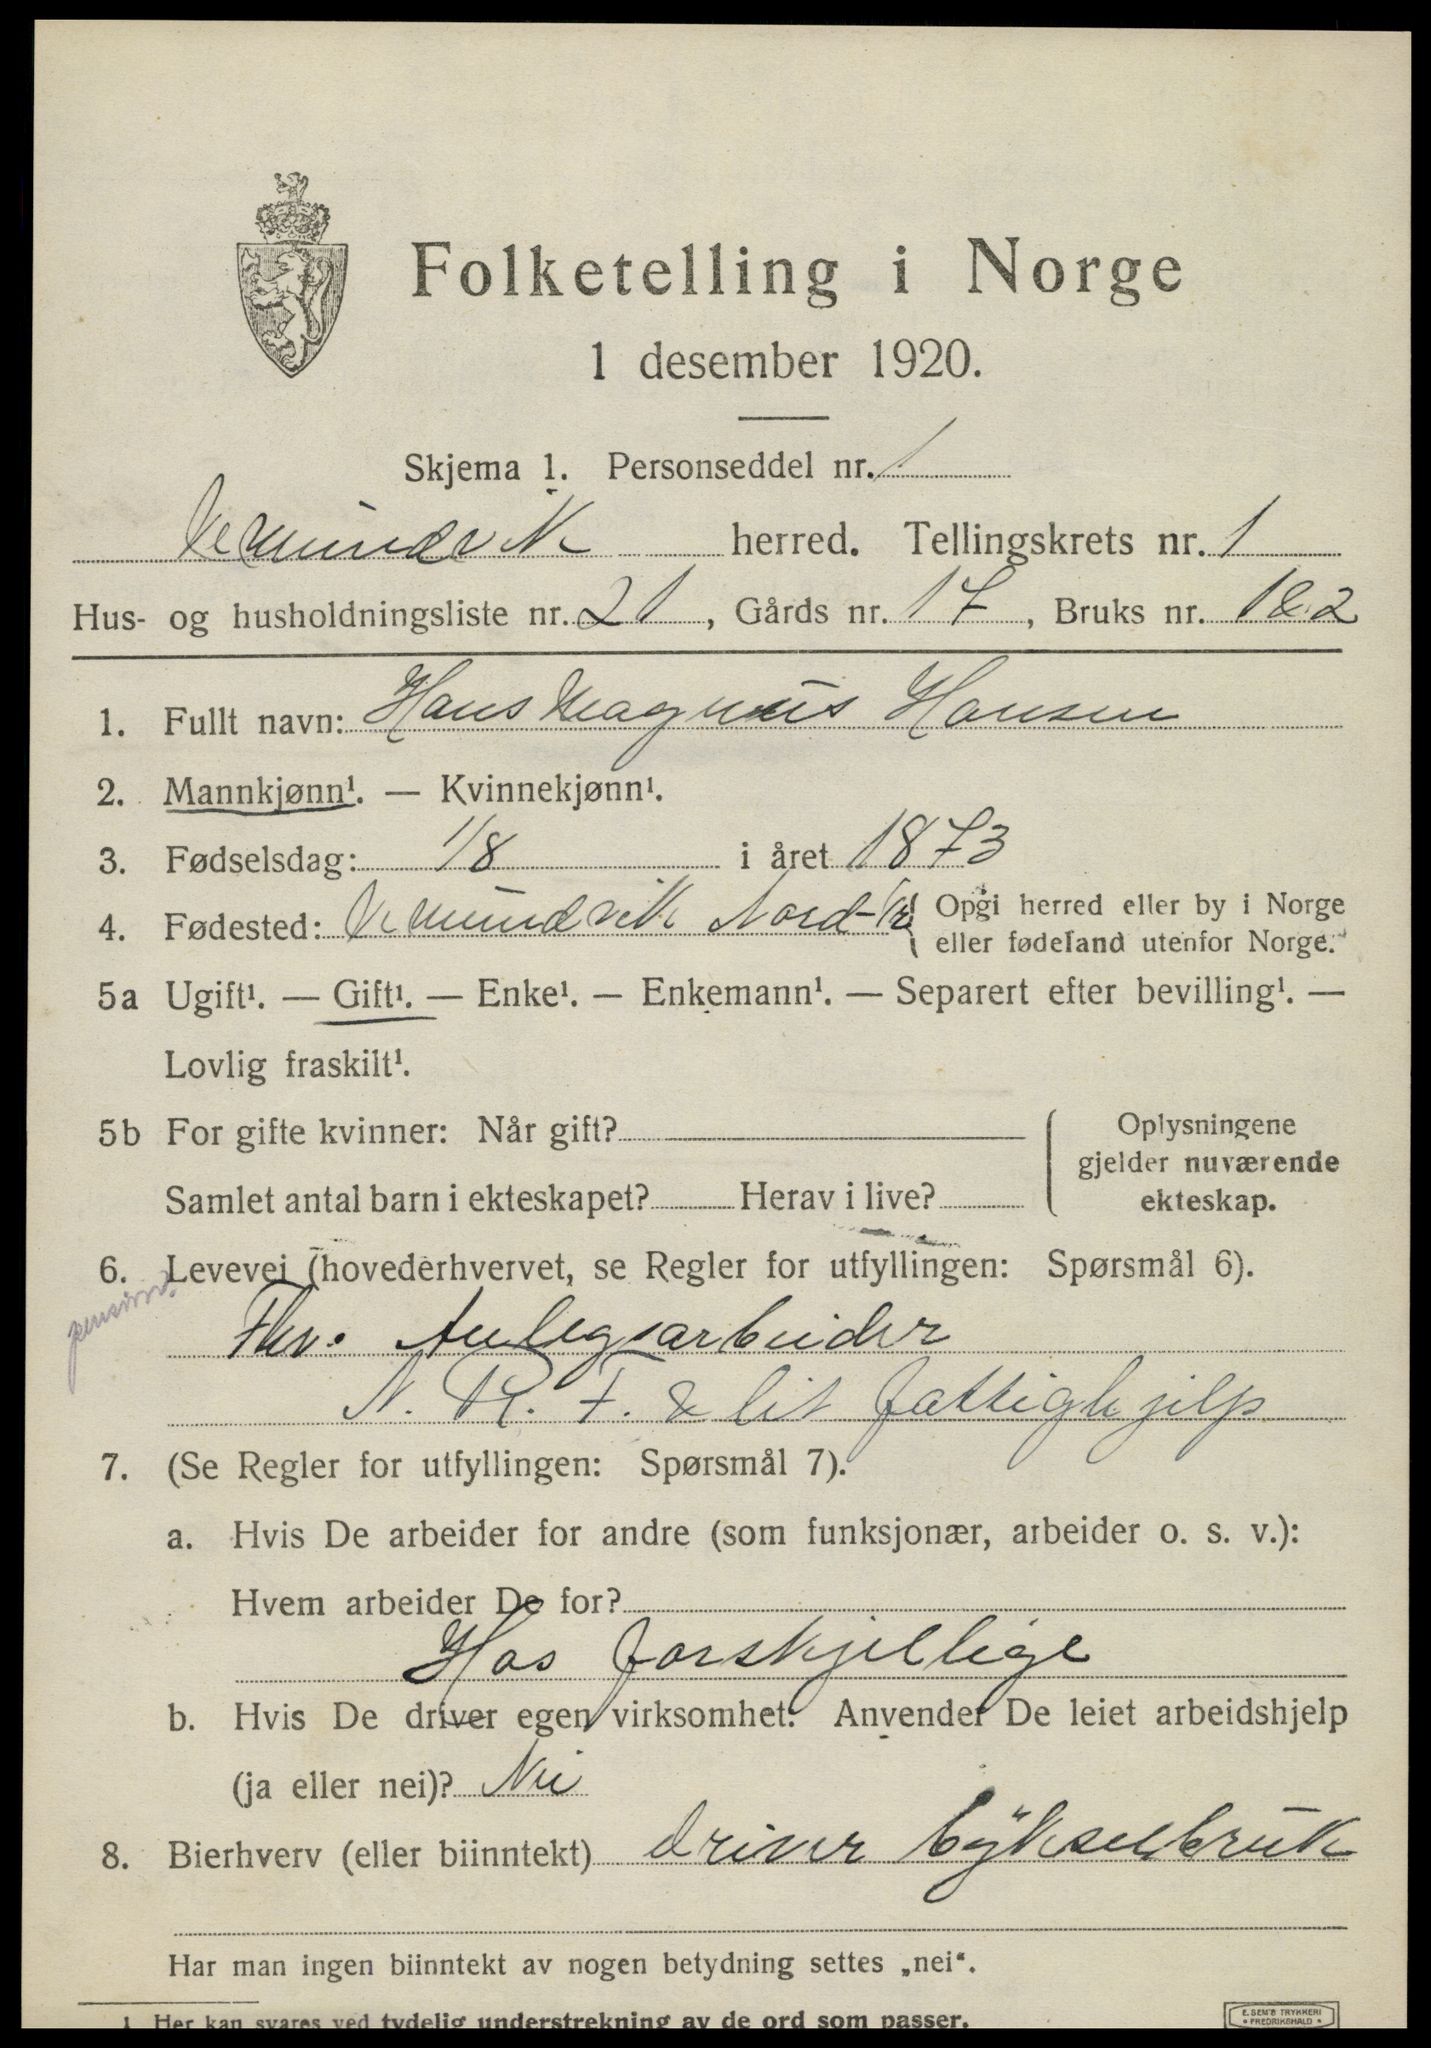 Folketelling i Norge
1 desember 1920.
Skjema 1. Personseddel nr. 1
Vemundvik herred. Tellingskrets nr. 1
Hus- og husholdningsliste nr. 21, Gårds nr. 17, Bruks nr. 1&2
1. Fullt navn: Hans Magnus Hansen
2. Mannkjønn¹. — Kvinnekjønn¹.
3. Fødselsdag: 1/8 i året 1873
4. Fødested: Vemundvik Nord-Tr { Opgi herred eller by i Norge
eller fødeland utenfor Norge.
5a Ugift¹. — Gift¹. — Enke¹. — Enkemann¹. — Separert efter bevilling¹. —
Lovlig fraskilt¹.
5b For gifte kvinner: Når gift?
Samlet antal barn i ekteskapet? Herav i live?
Oplysningene
gjelder nuværende
ekteskap.
6. Levevei (hovederhvervet, se Regler for utfyllingen: Spørsmål 6).
Anlegsarbeider
N. R. F. & lit fattighjelp
7. (Se Regler for utfyllingen: Spørsmål 7).
a. Hvis De arbeider for andre (som funksjonær, arbeider o. s. v.):
Hvem arbeider De for?
Hos forskjellige
b. Hvis De driver egen virksomhet: Anvender De leiet arbeidshjelp
(ja eller nei)? Nei
8. Bierhverv (eller biinntekt) driver bykselbruk
Har man ingen biinntekt av nogen betydning settes „nei“.
1 Her kan svares ved tydelig understrekning av de ord som passer.
E. SEM'S TRYKKERI
• FREDRIKSHALD •